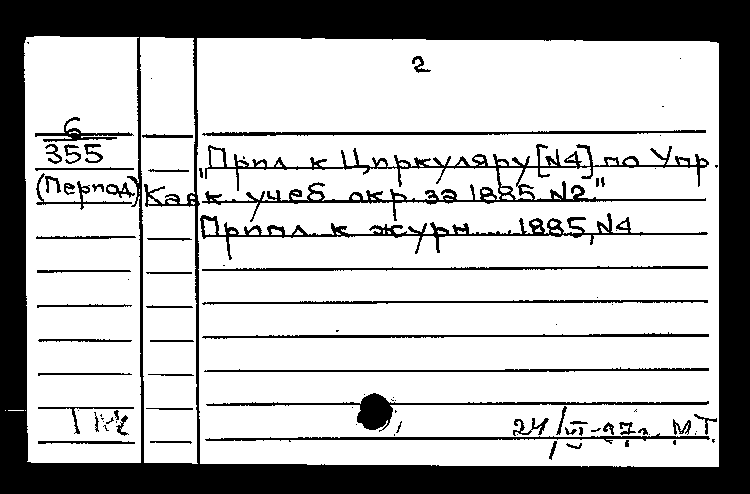 2
6
355
(Период) "Прил. к Циркуляру [N4] по Упр.
Кавк. учеб. окр. за 1885 N2."
Прил. к журн.... 1885, N4.
24/VI-97г. М.Т.